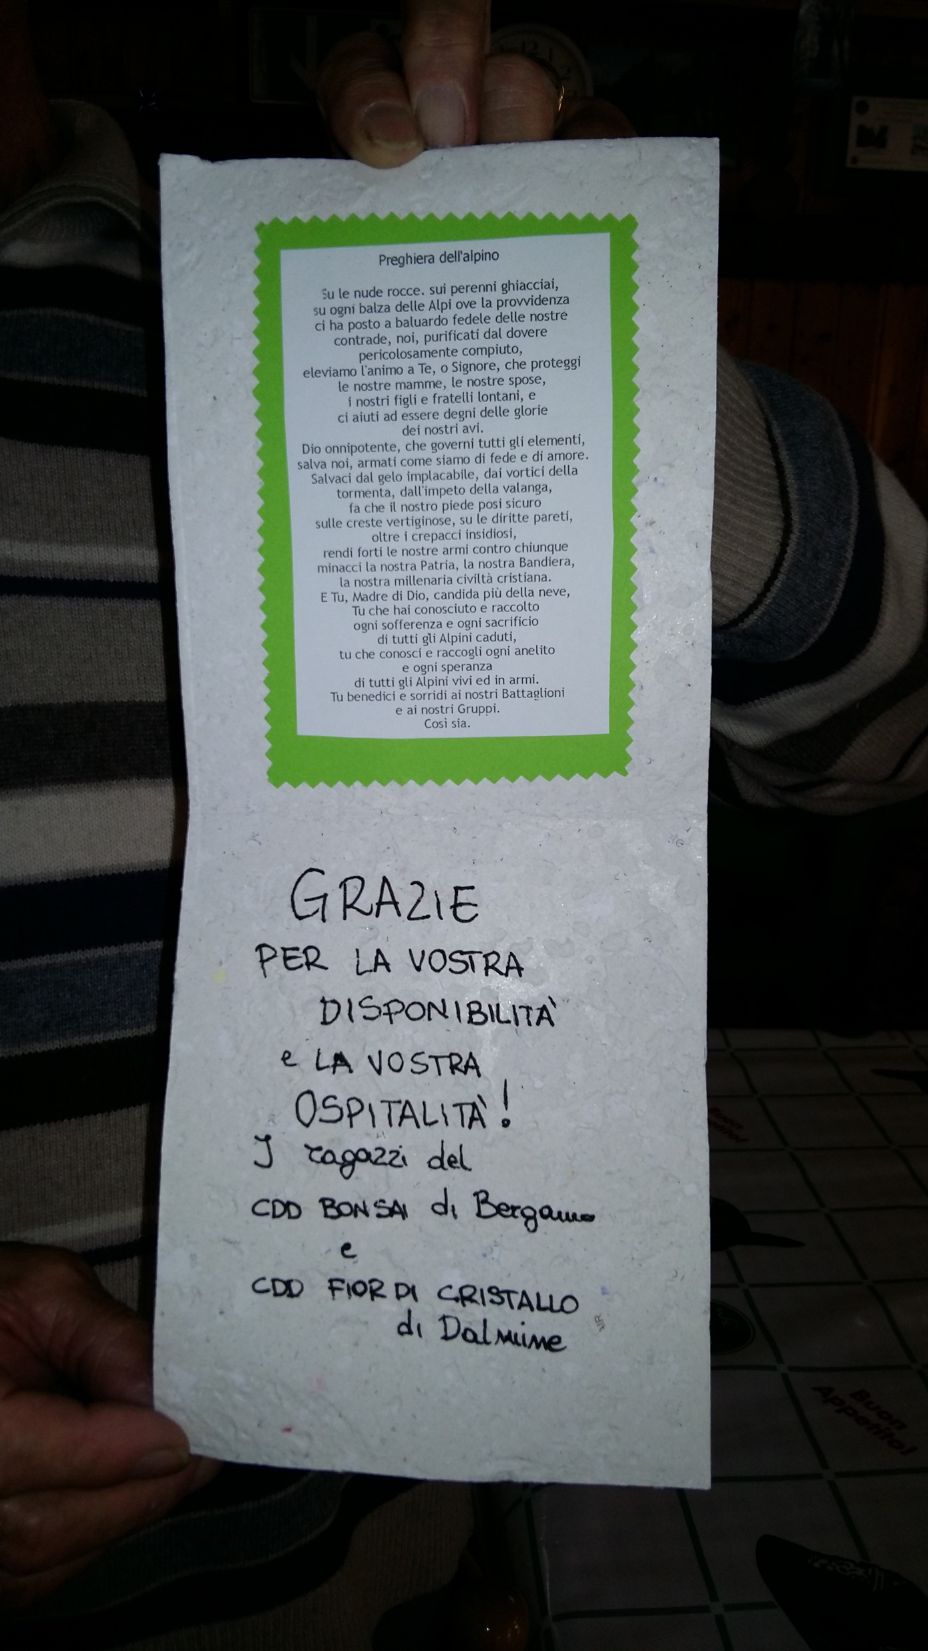 Preghiera dell'alpino
Su le nude rocce. sui perenni ghiacciai,
su ogni balza delle Alpi ove la provvidenza
ci ha posto a baluardo fedele delle nostre
contrade, noi, purificati dal dovere
pericolosamente compiuto,
eleviamo l'animo a Te, o Signore, che proteggi
le nostre mamme, le nostre spose,
i nostri figli e fratelli lontani, e
ci aiuti ad essere degni delle glorie
dei nostri avi.
Dio onnipotente, che governi tutti gli elementi,
salva noi, armati come siamo di fede e di amore.
Salvaci dal gelo implacabile, dai vortici della
tormenta, dall'impeto della valanga,
fa che il nostro piede posi sicuro
sulle creste vertiginose, su le diritte pareti,
oltre i crepacci insidiosi,
rendi forti le nostre armi contro chiunque
minacci la nostra Patria, la nostra Bandiera,
la nostra millenaria civiltà cristiana.
E Tu, Madre di Dio, candida più della neve,
Tu che hai conosciuto e raccolto
ogni sofferenza e ogni sacrificio
di tutti gli Alpini caduti,
tu che conosci e raccogli ogni anelito
e ogni speranza
di tutti gli Alpini vivi ed in armi.
Tu benedici e sorridi ai nostri Battaglioni
e ai nostri Gruppi.
Così sia.
GRAZIE
PER LA VOSTRA
DISPONIBILITÀ
e LA VOSTRA
OSPITALITÀ!
I ragazzi del
CDD BONSAI di Bergamo
e
CDD FIOR DI CRISTALLO
di Dalmine
Buon
Appetito!